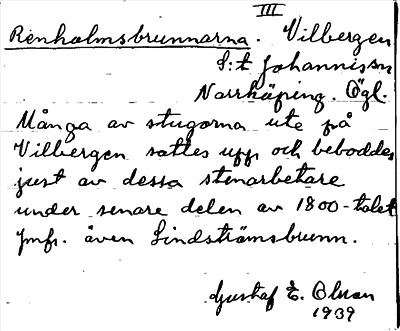 III
Renholmsbrunnarna. Vilbergen
S:t Johannissn
Norrköping. Ögl.
Många av stugorna ute på
Vilbergen sattes upp och beboddes
just av dessa stenarbetare
under senare delen av 1800-talet
Jmfr. även Lindströmsbrunn.
Gustaf E. Olsson
1939